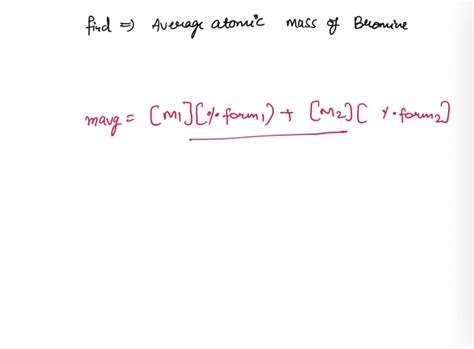 find ⇒ Average atomic mass of Bromine
mavg = [M1][%form1) + [M2][ %form2]